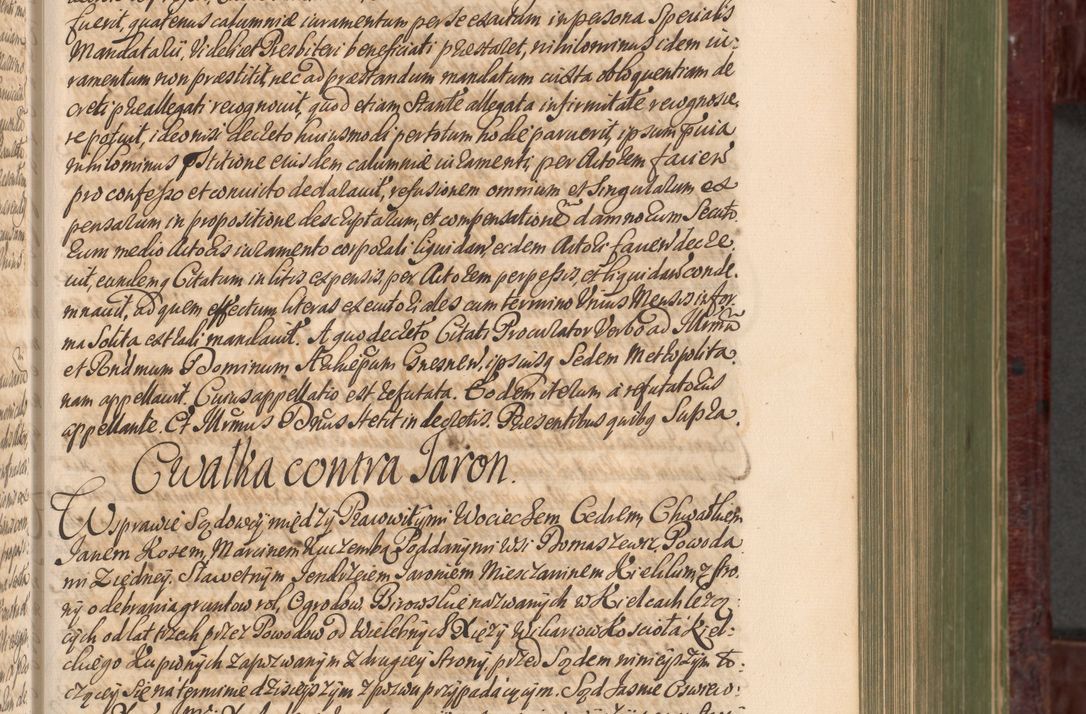 fuerit, quatenus calumniæ iuramentum per se exactum in persona Specialis
Mandatarii, Videlicet Presbiteri beneficiati præstaret, nihilominus idem iu:
ramentum non præstitit, nec ad præstandum mandatum iuxta obloquentiam de
creti præallegati recognovit, quod etiam Stante allegata infirmitate recognosce,
re potuit, ideo nisi decreto huiusmodi per totum hodie paruerit, ipsum quia
nihilominus Stitione eiusdem calumniæ iuramenti, per Actorem
pro confesso et convicto declaravit, refusionem omnium et Singularum ex
pensarum in propositione descriptarum, et compensationem damnorum Secuto
rum medio Actoris iuramento corporali liquidan: eidem Actori faven: decre
vit, eundemq Citatum in litis expensis, per Actorem perpessis, et liquidan: conde.
mnavit, ad quem effectum, literas executoriales cum termino Unius Mensis in for.
ma Solita extradi mandavit. A quo decreto Citati Procurator Verbo ad Illrm̃
et Rndmum Dominum Archiepum Gnesnen, ipsiusq Sedem Metropolita.
nam appellavit. Cuius appellatio est refutata. Eodem iterum a refutatorus
appellante. Et Illrm̃us Dñus stetit in decretis. Præsentibus quibq Supra.
Cwalka contra Jaron.
W sprawie Sądowey między Pracowitymi Woyciechem Cedrem, Chwałkiem
Janem Kosem, Marcinem Kuczemba Poddanymi Wsi Domaszewic, Powoda
mi z iedney. Sławetnym Jendrzeiem Jaroniem Miesczaninem Kielckim z stro.
ny odebrania gruntow rol, Ogrodow, Birowskie nazwanych w Kielcach leżą:
cych od lat trzech przez Powodow od Wielebnych Xięży Wikariow Kościoła Kiel:
ckiego kupionych zapozwanym z drugiey Strony, przed Sądem ninieyszym to:
czącey się na terminie dzisieyszym z pozwu przypadaiącym. Sąd Jasnie Oswieco: